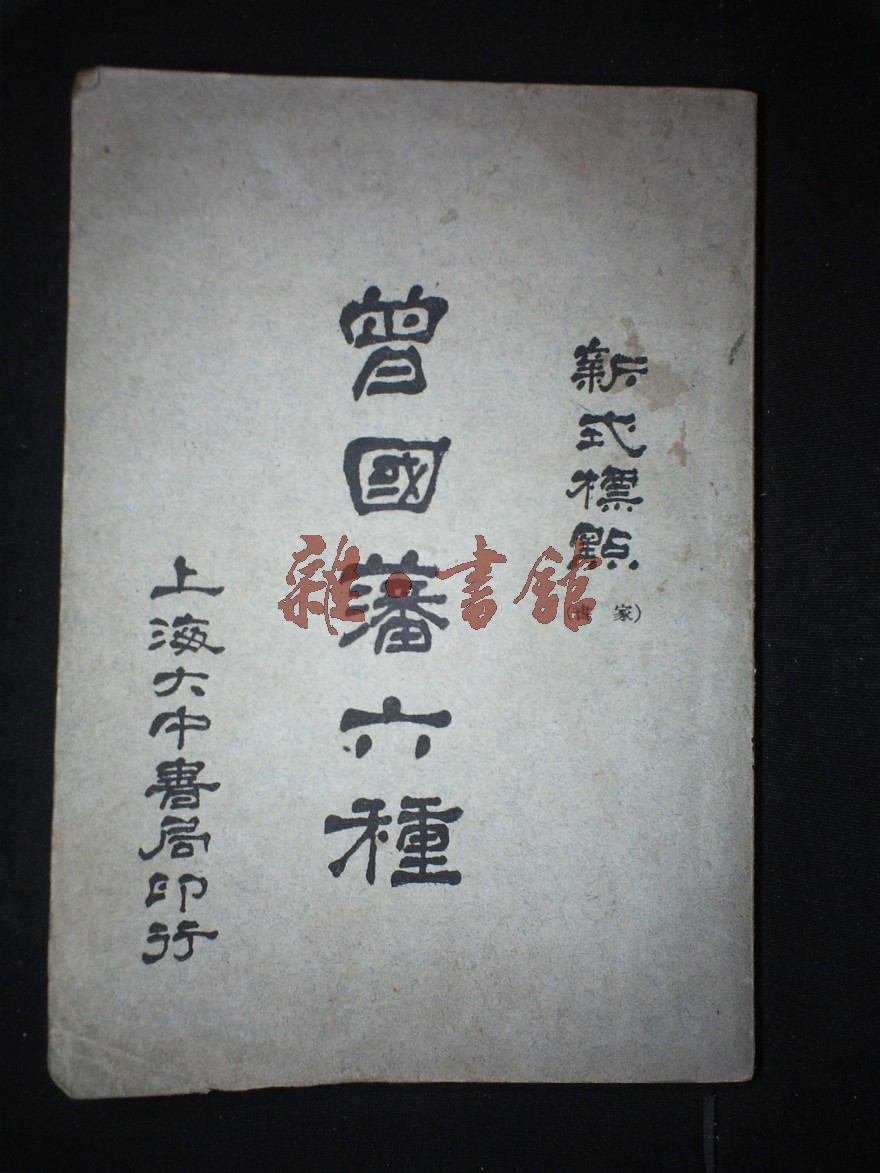 新式標點
(書 家)
曾國藩六種
上海大中書局印行
雜·書館